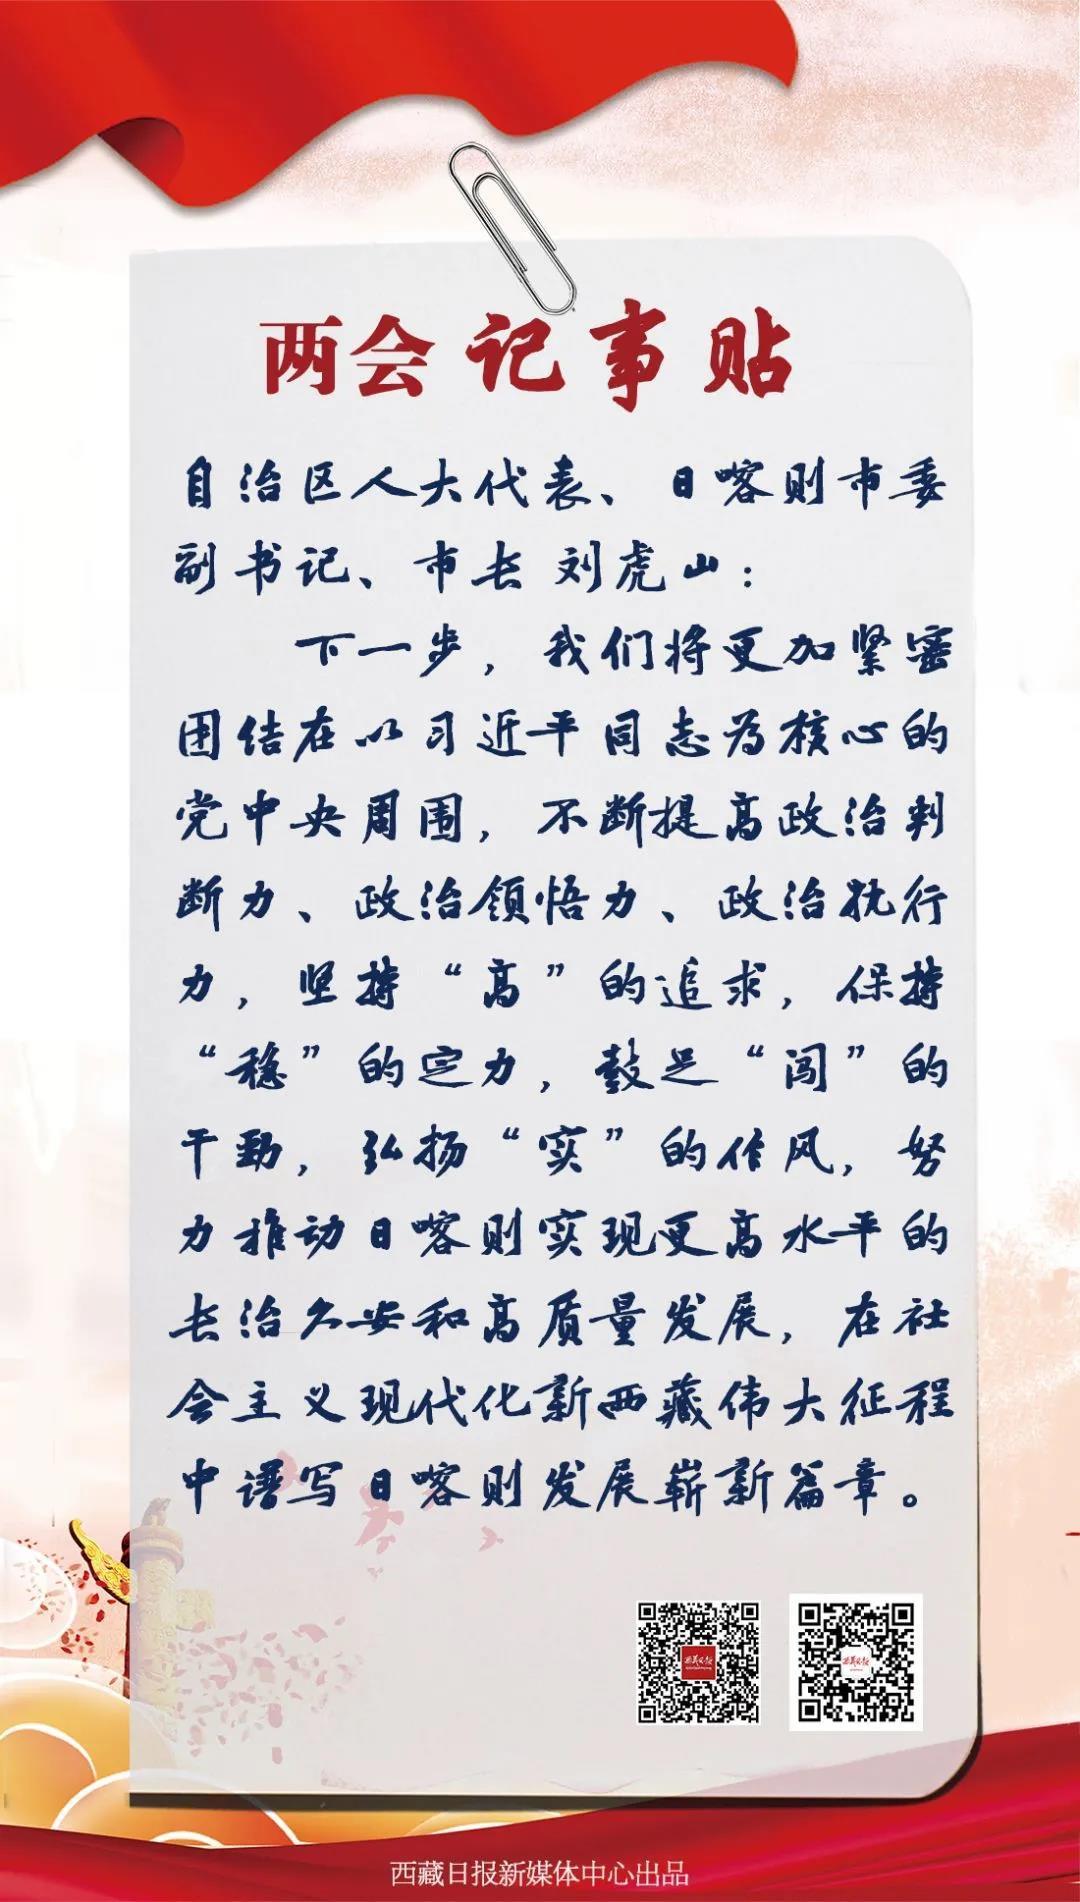 两会记事贴
自治区人大代表、日喀则市委
副书记、市长 刘虎山：
下一步，我们将更加紧密
团结在以习近平同志为核心的
党中央周围，不断提高政治判
断力、政治领悟力、政治执行
力，坚持“高”的追求，保持
“稳”的定力，鼓足“闯”的
干劲，弘扬“实”的作风，努
力推动日喀则实现更高水平的
长治久安和高质量发展，在社
会主义现代化新西藏伟大征程
中谱写日喀则发展崭新篇章。
西藏日报
西藏日报新媒体中心出品